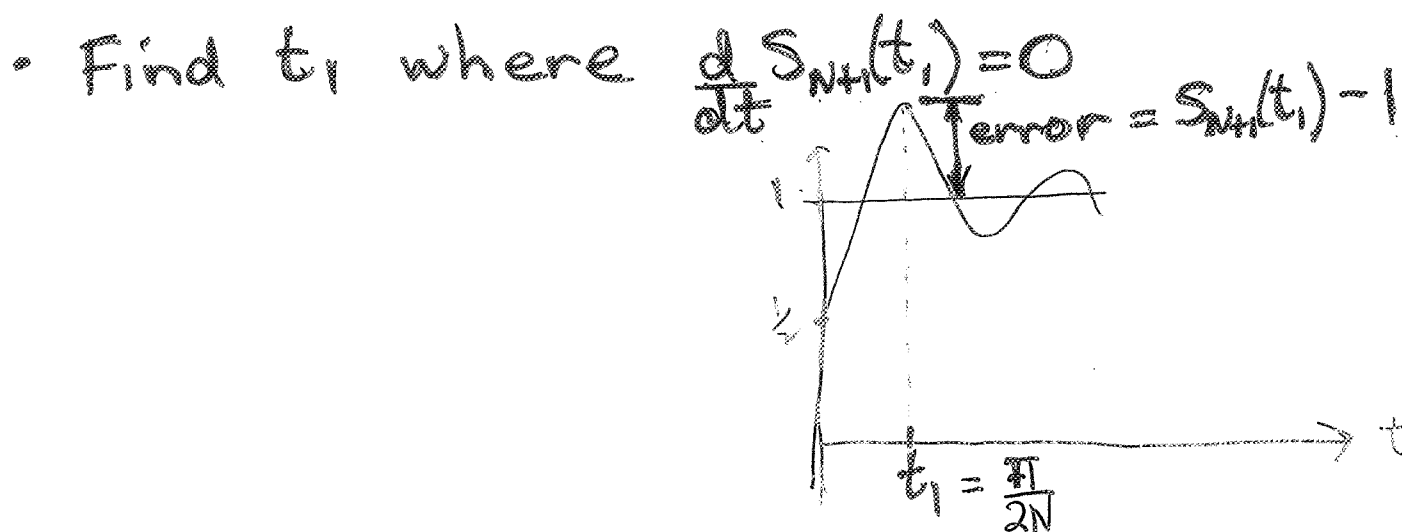 • Find t₁ where d/dt S_{N+1}(t₁) = 0
error = S_{N+1}(t₁) - 1
1
½
t
t₁ = π/2N